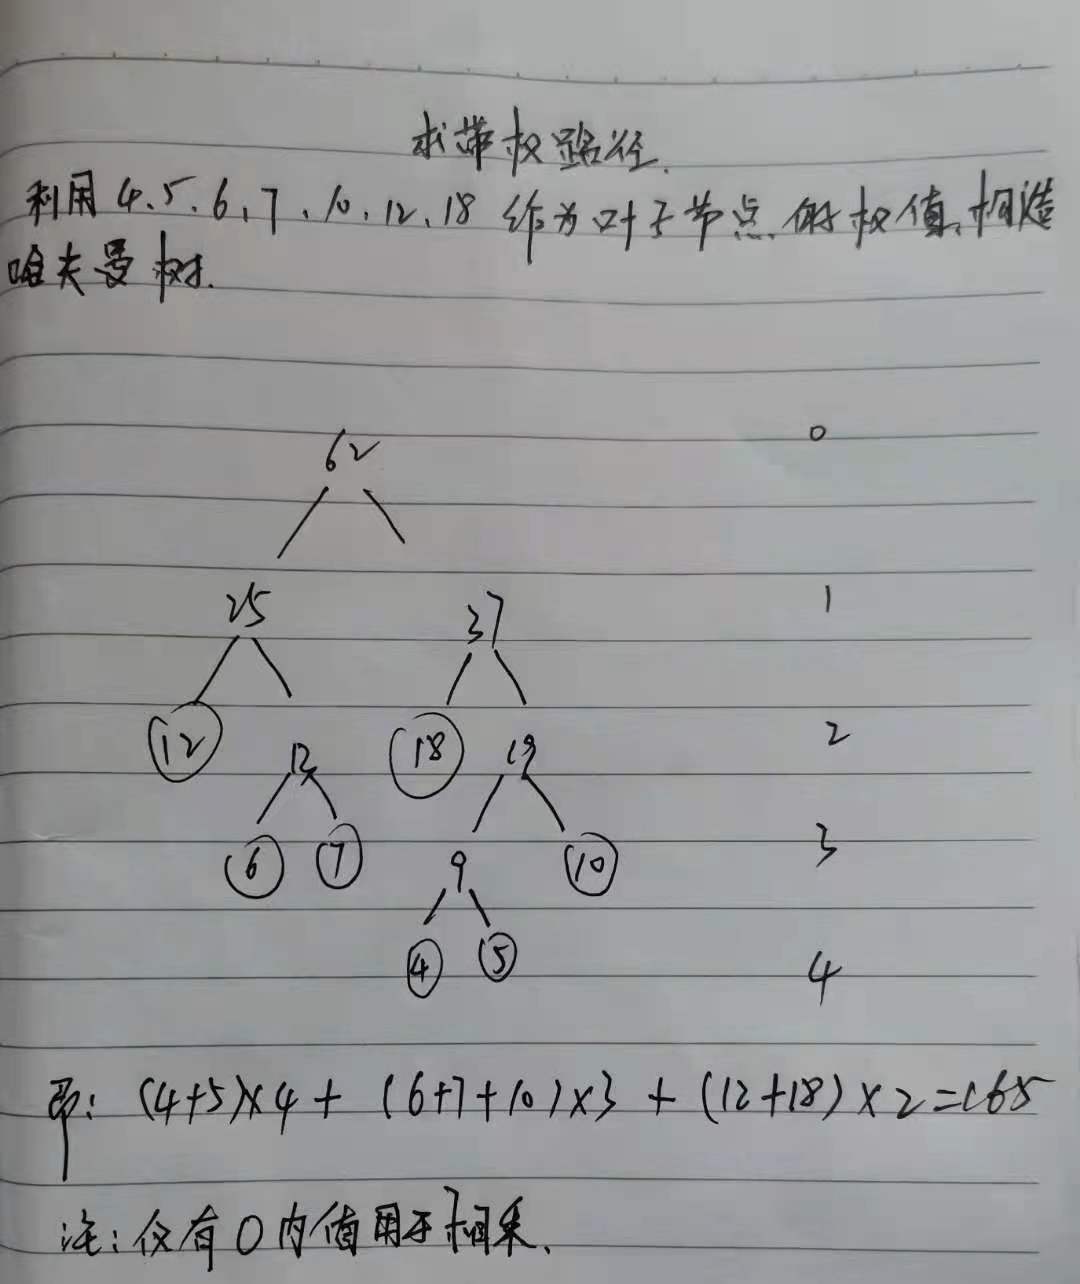 求带权路径.
利用4、5、6、7、10、12、18 作为叶子节点的权值,构造
哈夫曼树.
62 0
25 37 1
12 13 18 19 2
6 7 9 10 3
4 5 4
即: (4+5)×4 + (6+7+10)×3 + (12+18)×2=165
注:仅有O内值用于相乘.